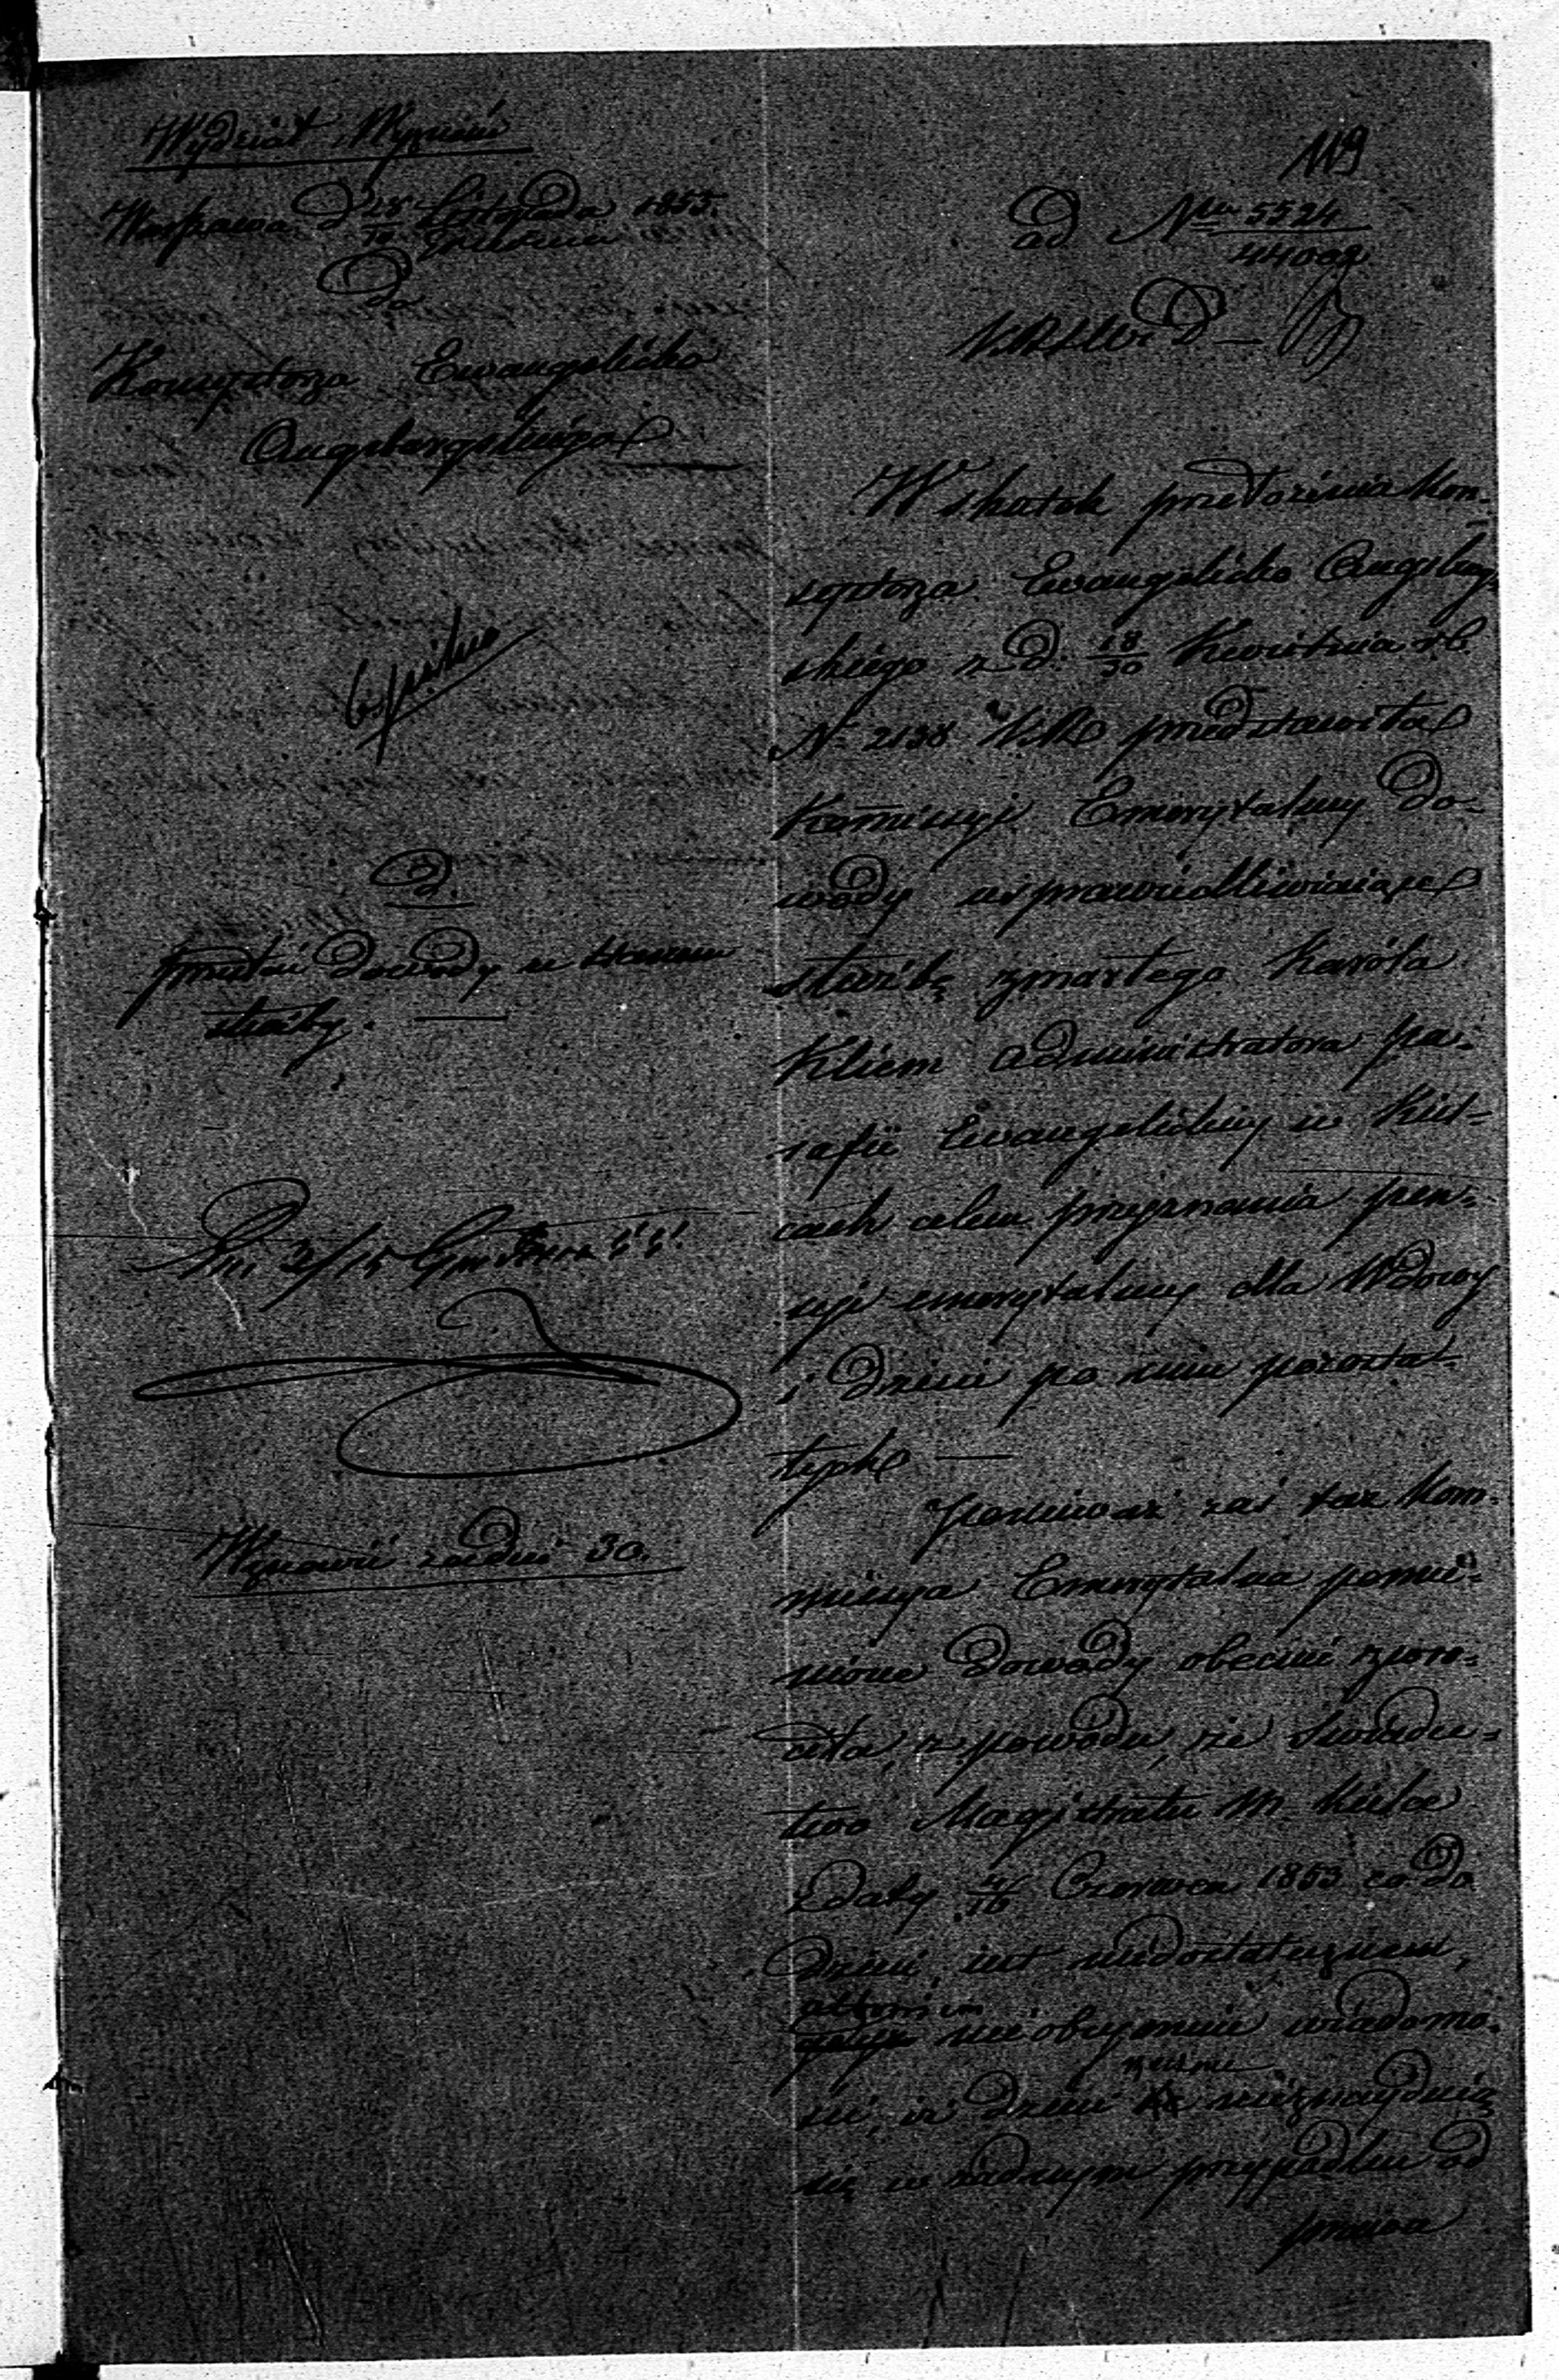 Wydział Wyznań
Warszawa d 28/10 Listopada/Grudnia 1855.
Do
Konsystorza Ewangelicko
Augsburgskiego
d.
dowody w
służby.
3/15 Grudnia
Wznowić za dni 30.
119
ad Nra 5524/44002
W skutek przedłożenia Kon-
systorza Ewangelicko Augsburg-
skiego z d. 18/30 Kwietnia r.b.
N. 2138 przedstawiła
Kommissyi Emerytalney do-
wody usprawiedliwiaiące
służbę zmarłego Karola
Kliem Administratora pa-
rafii Ewangelickiey w Kiel-
cach celem przyznania pen-
syi emerytalney dla Wdowy
i dzieci po nim pozosta-
łych
Ponieważ zaś taż Kom-
missya Emerytalna pomie-
nione dowody obecnie zwró-
ciła, z powodu, że świadec-
two Magistratu M. Kielce
z daty 4/16 Czerwca 1853 co do
dzieci, iest niedostatecznem,
albowiem
gdyż nie obeymuie wiadomo-
ści, iż dzieci te nieznayduią
się w żadnym przypadku od
prawa